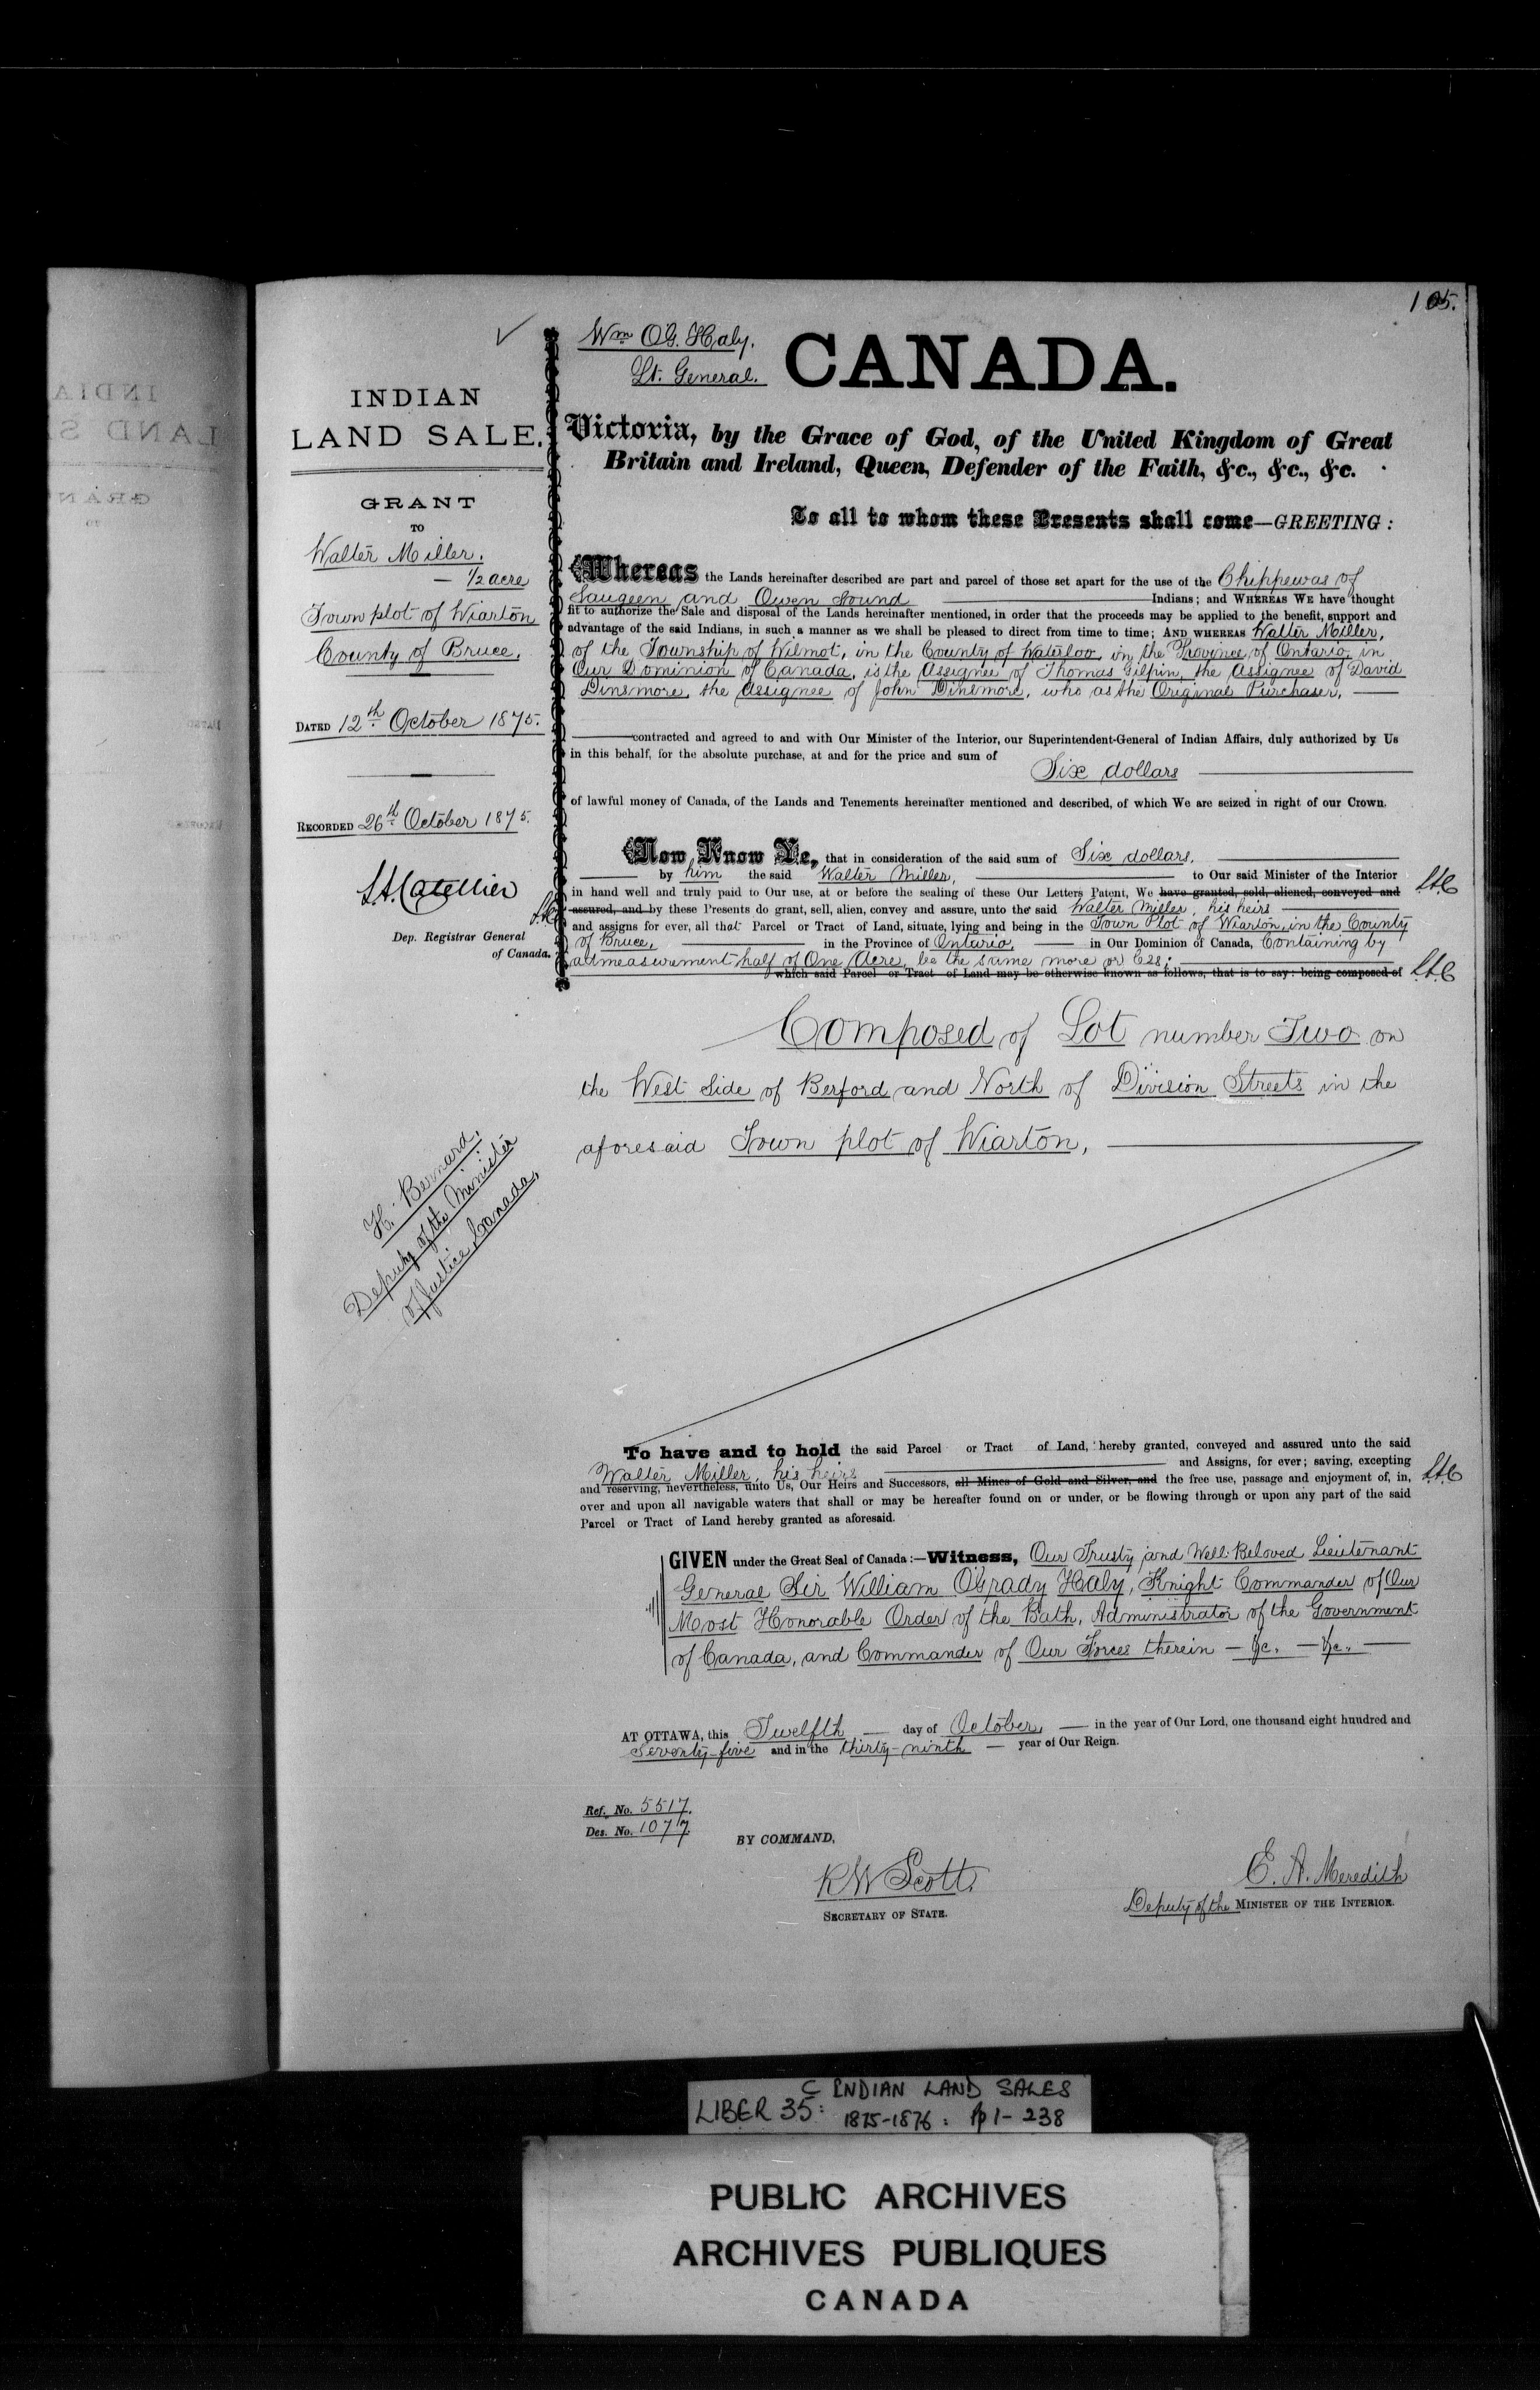 105.
Wm O'G. Haly.
Lt. General.
CANADA.
INDIAN
LAND SALE.
GRANT
TO
Walter Miller.
— 1/2 acre
Town plot of Wiarton
County of Bruce.
DATED 12th October 1875.
RECORDED 26th October 1875.
L.A. Catellier
Dep. Registrar General
of Canada.
H. Bernard.
Deputy of the Minister
of Justice, Canada.
Victoria, by the Grace of God, of the United Kingdom of Great
Britain and Ireland, Queen, Defender of the Faith, &c., &c., &c.
To all to whom these Presents shall come—GREETING:
Whereas the Lands hereinafter described are part and parcel of those set apart for the use of the Chippewas of
Saugeen and Owen Sound Indians; and WHEREAS WE have thought
fit to authorize the Sale and disposal of the Lands hereinafter mentioned, in order that the proceeds may be applied to the benefit, support and
advantage of the said Indians, in such a manner as we shall be pleased to direct from time to time; AND WHEREAS Walter Miller,
of the Township of Wilmot, in the County of Waterloo, in the Province of Ontario, in
Our Dominion of Canada, is the Assignee of Thomas Gilpin, the Assignee of David
Dinsmore, the Assignee of John Dinsmore, who as the Original Purchaser,
contracted and agreed to and with Our Minister of the Interior, our Superintendent-General of Indian Affairs, duly authorized by Us
in this behalf, for the absolute purchase, at and for the price and sum of
Six dollars
of lawful money of Canada, of the Lands and Tenements hereinafter mentioned and described, of which We are seized in right of our Crown.
Now Know Ye, that in consideration of the said sum of Six dollars.
by him the said Walter Miller, to Our said Minister of the Interior
in hand well and truly paid to Our use, at or before the sealing of these Our Letters Patent, We have granted, sold, aliened, conveyed and L.A.C
L.A.C assured, and by these Presents do grant, sell, alien, convey and assure, unto the said Walter Miller, his heirs
and assigns for ever, all that Parcel or Tract of Land, situate, lying and being in the Town Plot of Wiarton, in the County
of Bruce, in the Province of Ontario, in Our Dominion of Canada, Containing by
admeasurement half of One Acre, be the same more or less;
which said Parcel or Tract of Land may be otherwise known as follows, that is to say: being composed of L.A.C
Composed of Lot number Two on
the West Side of Berford and North of Division Streets in the
aforesaid Town plot of Wiarton,
To have and to hold the said Parcel or Tract of Land, hereby granted, conveyed and assured unto the said
Walter Miller, his heirs and Assigns, for ever; saving, excepting
and reserving, nevertheless, unto Us, Our Heirs and Successors, all Mines of Gold and Silver, and the free use, passage and enjoyment of, in, L.A.C
over and upon all navigable waters that shall or may be hereafter found on or under, or be flowing through or upon any part of the said
Parcel or Tract of Land hereby granted as aforesaid.
GIVEN under the Great Seal of Canada:—Witness, Our Trusty and Well-Beloved Lieutenant
General Sir William O'Grady Haly, Knight Commander of Our
Most Honorable Order of the Bath, Administrator of the Government
of Canada, and Commander of Our Forces therein — &c. — &c. —
AT OTTAWA, this Twelfth day of October, in the year of Our Lord, one thousand eight hundred and
Seventy-five and in the thirty-ninth year of Our Reign.
Ref. No. 5517.
Des. No. 1077.
BY COMMAND,
R W Scott.
SECRETARY OF STATE.
E. A. Meredith
Deputy of the MINISTER OF THE INTERIOR.
C INDIAN LAND SALES
LIBER 35: 1875-1876: pp 1-238
PUBLIC ARCHIVES
ARCHIVES PUBLIQUES
CANADA